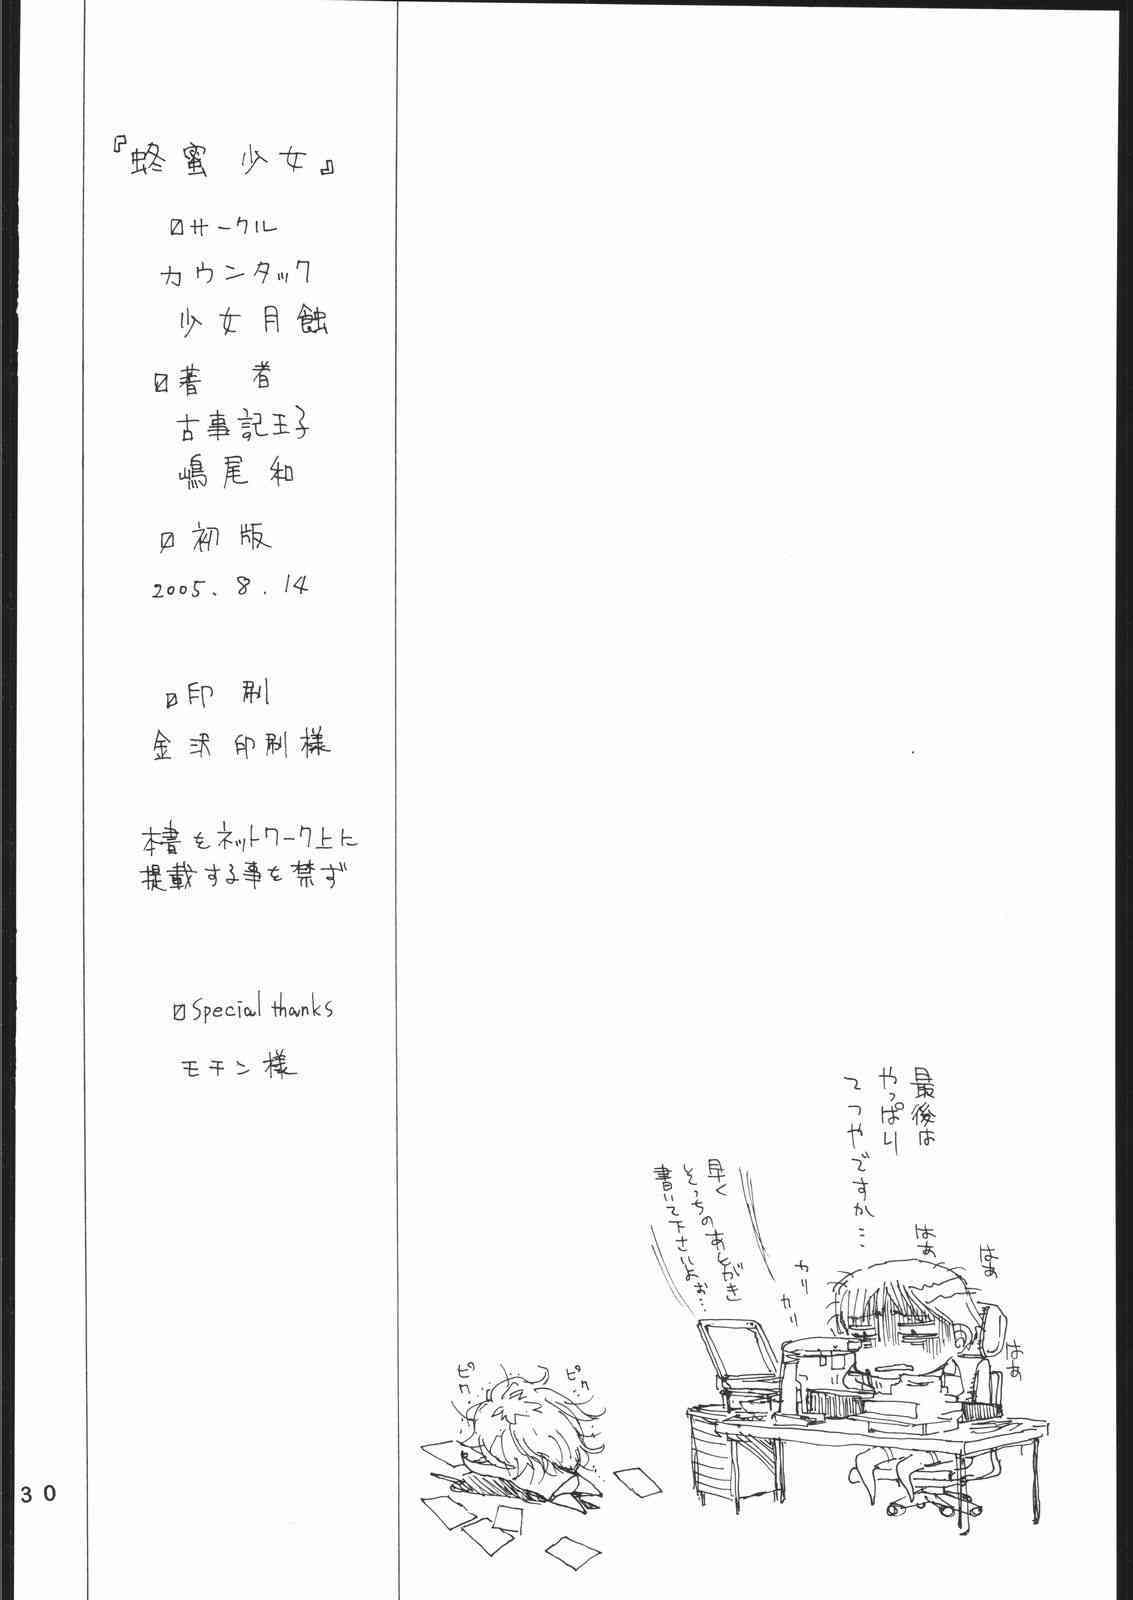 『蜂蜜少女』
サークル
カウンタック
少女月蝕
著 者
古事記王子
嶋尾 和
初版
2005. 8. 14
印刷
金沢印刷様
本書をネットワーク上に
掲載する事を禁ず
Special thanks
モチン様
最後は
やっぱり
てつやですか…
はぁ
はぁ
はぁ
カリ
カリ
早く
そっちのあとがき
書いて下さいよぉ…
ピク…
ピク
30